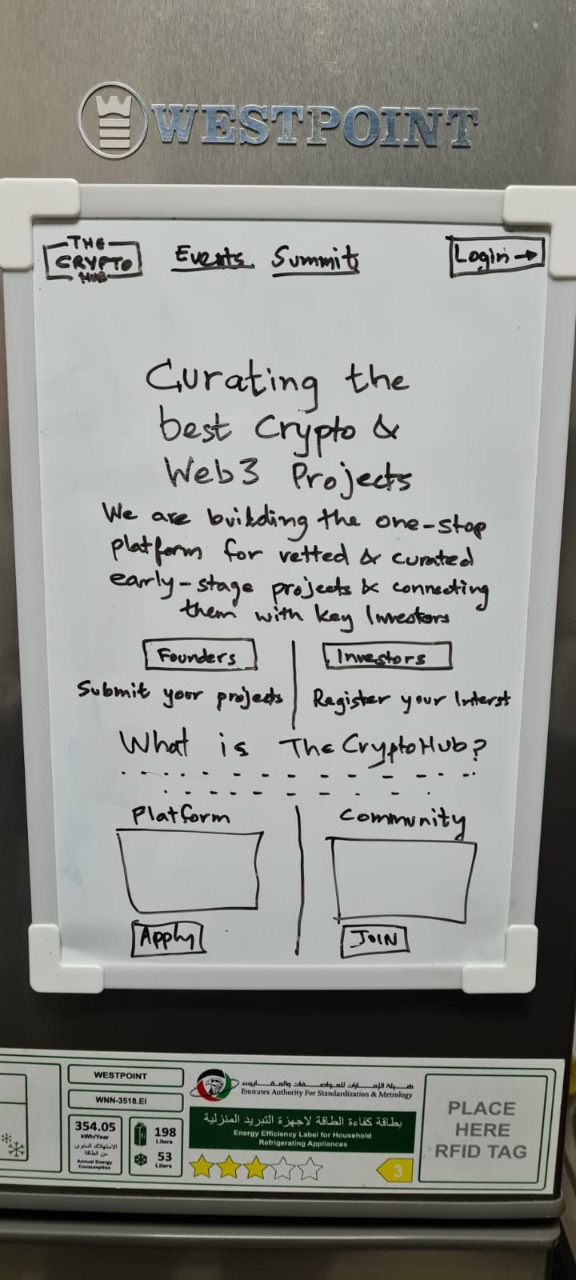 WESTPOINT
THE
CRYPTO
HUB
Events Summit
Login →
Curating the
best Crypto &
Web3 Projects
We are building the one-stop
platform for vetted & curated
early-stage projects & connecting
them with key Investors
Founders
Investors
Submit your projects
Register your Interst
What is TheCryptoHub?
Platform
Community
Apply
JOIN
WESTPOINT
WNN-3518.EI
354.05
kWh/Year
الاستهلاك السنوي
من الطاقة
Annual Energy
Consumption
198
Liters
53
Liters
هيئة الإمارات للمواصفات والمقاييس
Emirates Authority For Standardization & Metrology
بطاقة كفاءة الطاقة لاجهزة التبريد المنزلية
Energy Efficiency Label for Household
Refrigerating Appliances
3
PLACE
HERE
RFID TAG